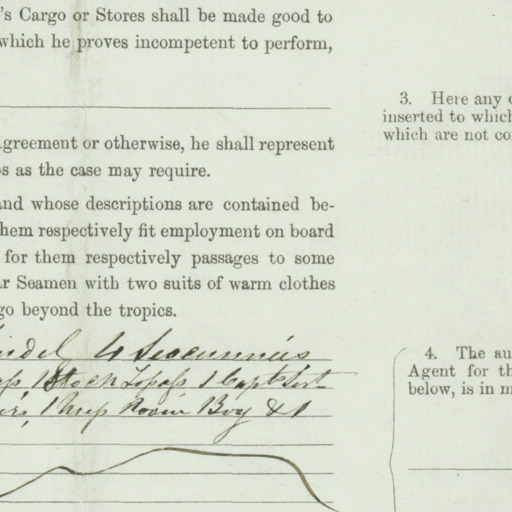 's Cargo or Stores shall be made good to
which he proves incompetent to perform,
greement or otherwise, he shall represent
s as the case may require.
and whose descriptions are contained be-
hem respectively fit employment on board
for them respectively passages to some
r Seamen with two suits of warm clothes
go beyond the tropics.
4 Seacunnies
1 Topass 1
1 Mess Room Boy & 1
3. Here any
inserted to which
which are not co
4. The au
Agent for th
below, is in m